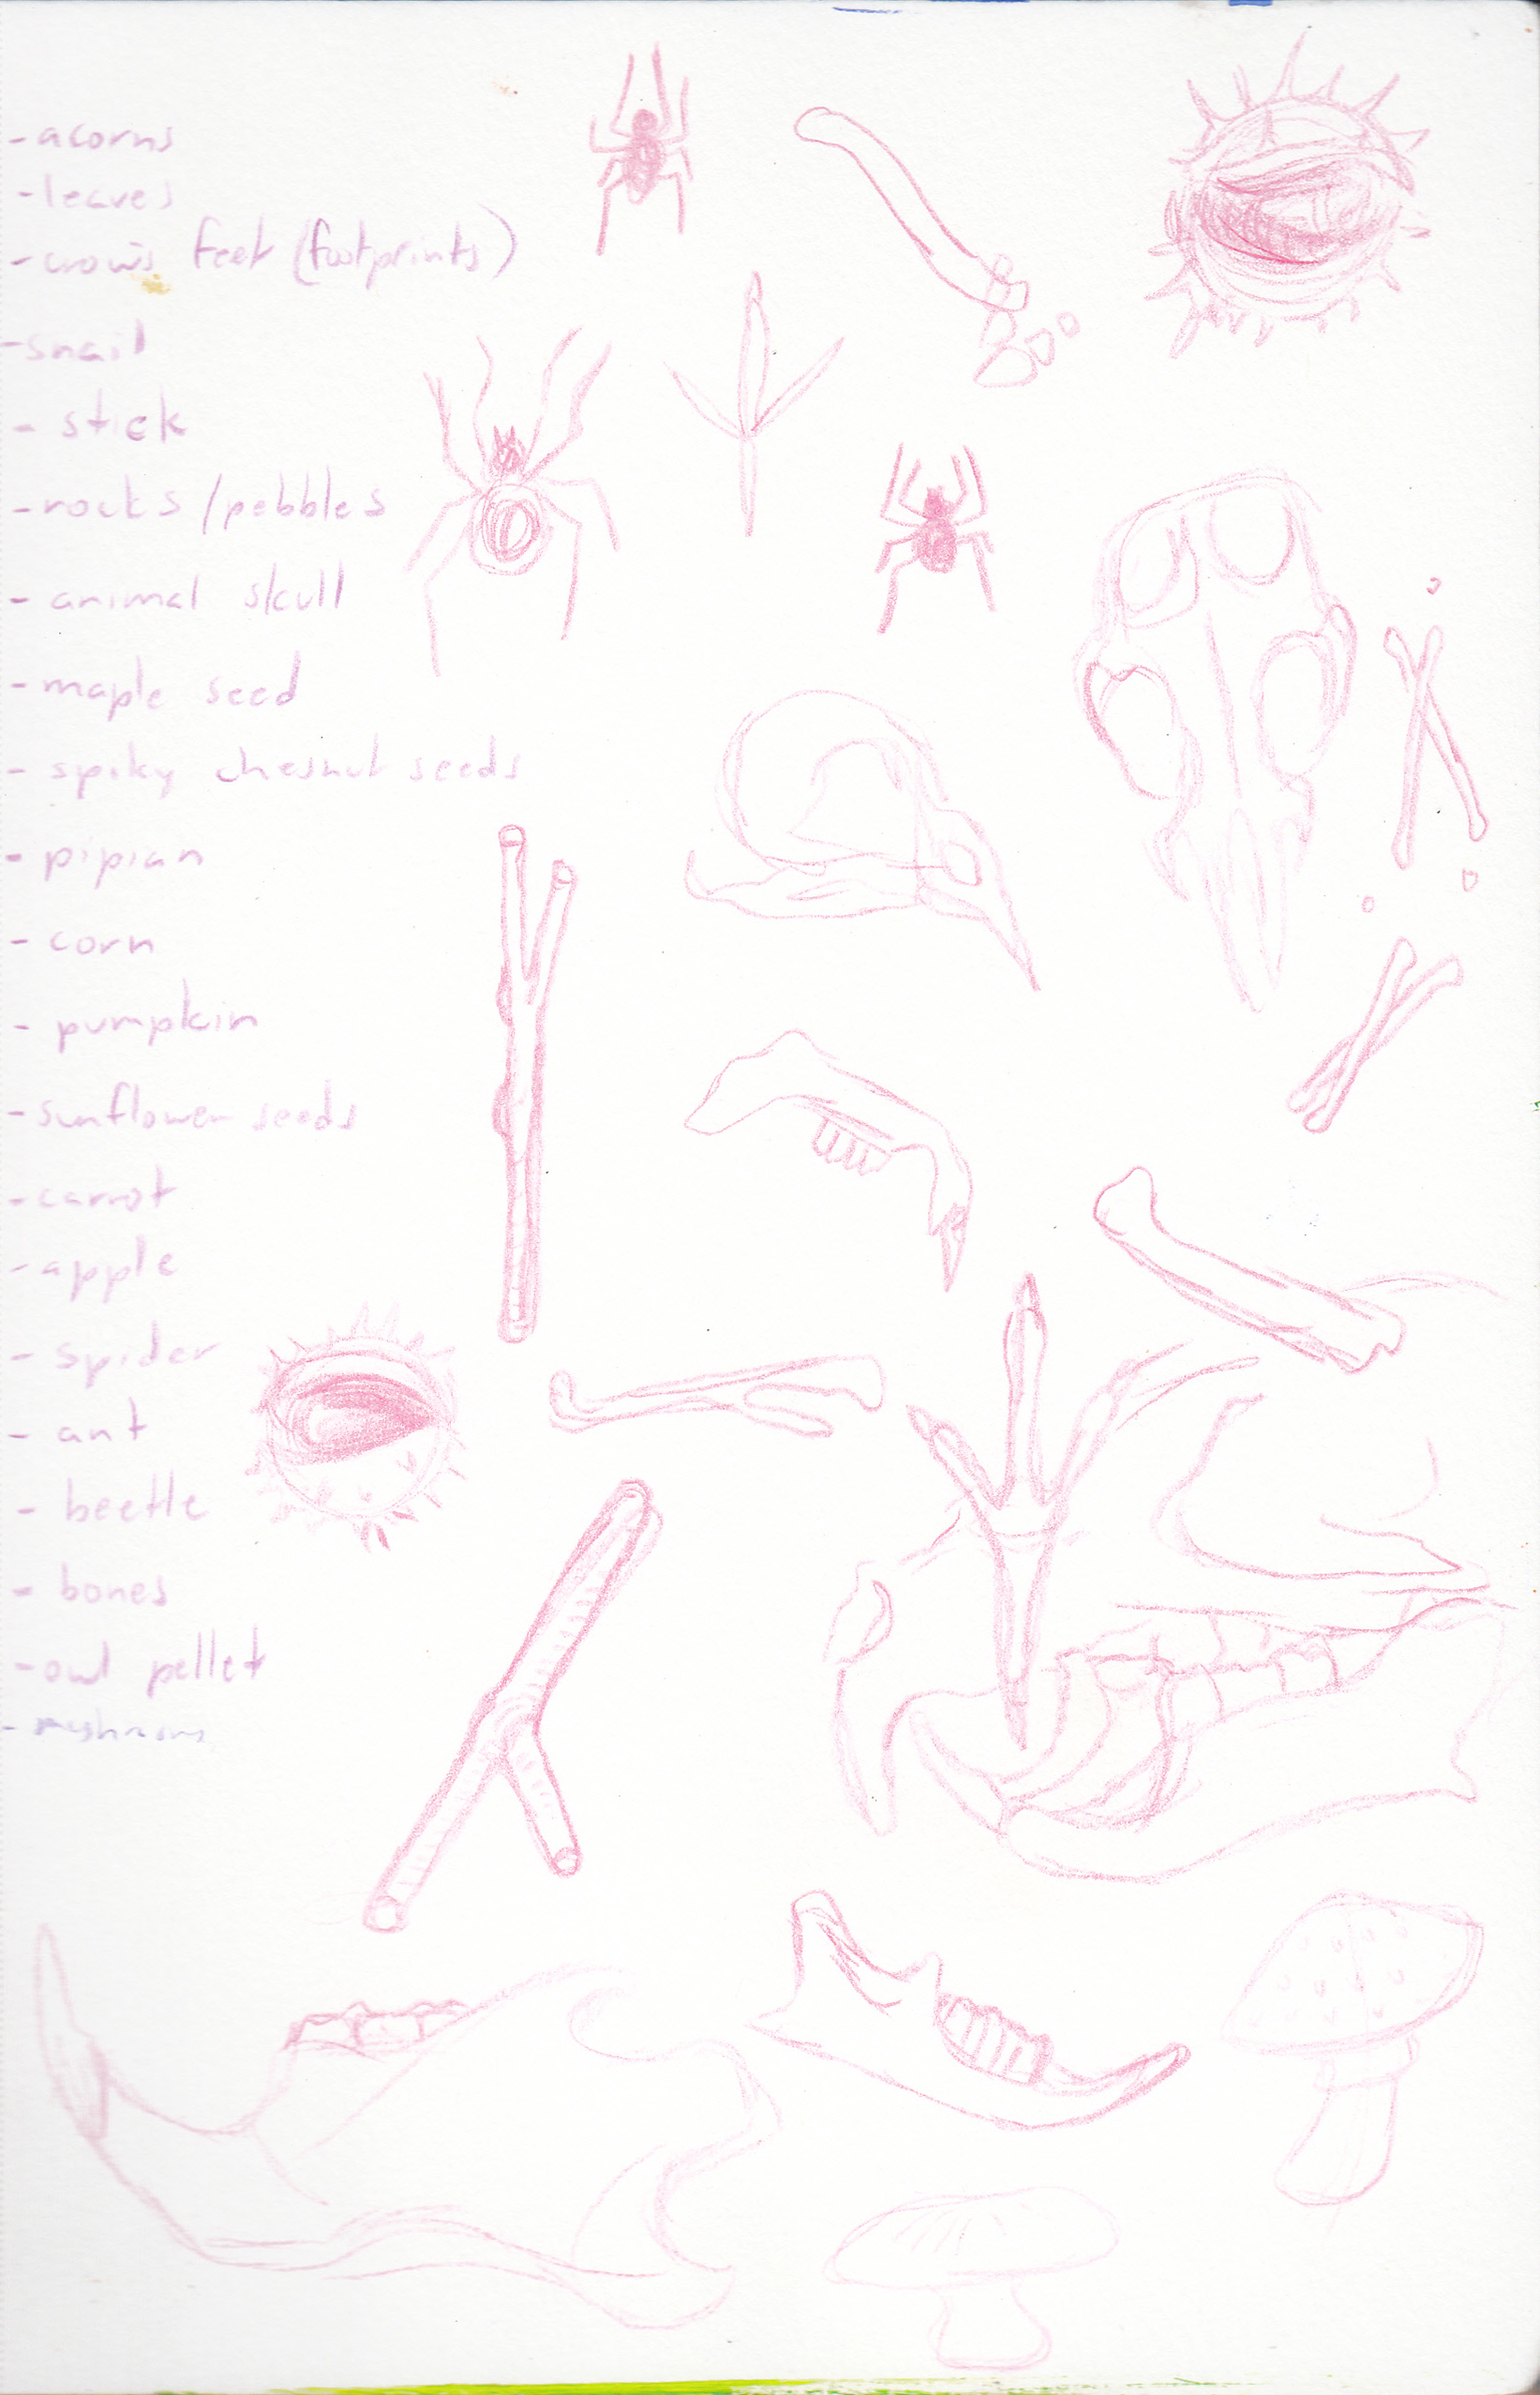 - acorns
- leaves
- crow's feet (footprints)
- snail
- stick
- rocks/pebbles
- animal skull
- maple seed
- spiky chesnut seeds
- pipian
- corn
- pumpkin
- sunflower seeds
- carrot
- apple
- spider
- ant
- beetle
- bones
- owl pellet